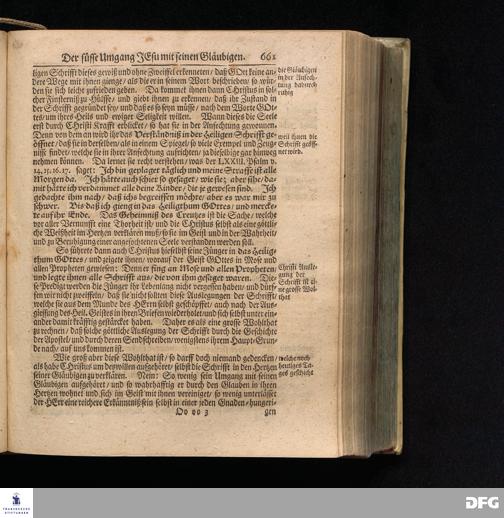 Der süsse Umgang JEsu mit seinen Gläubigen. 661
ligen Schrifft dieses gewiß und ohne Zweiffel erkenneten/ daß GOtt keine an-
dere Wege mit ihnen gienge/ als die er in seinem Wort beschrieben/ so wür-
den sie sich leicht zufrieden geben. Da kommet ihnen dann Christus in sol-
cher Finsterniß zu Hülffe/ und giebt ihnen zu erkennen/ daß ihr Zustand in
der Schrifft gegründet sey/ und daß es so seyn müsse/ nach dem Worte GOt-
tes/ um ihres Heils und ewiger Seligkeit willen. Wann dieses die Seele
erst durch Christi Krafft erblicket/ so hat sie in der Anfechtung gewonnen.
Denn von dem an wird ihr das Verständniß in der Heiligen Schrifft ge-
öffnet/ daß sie in derselben/ als in einem Spiegel/ so viele Exempel und Zeug-
nisse findet/ welche sie in ihrer Anfechtung aufrichten/ ja dieselbige gar hinweg
nehmen können. Da lernet sie recht verstehen/ was der LXXIII. Psalm v.
14. 15. 16. 17. saget: Ich bin geplaget täglich und meine Straffe ist alle
Morgen da. Ich hätte auch schier so gesaget/ wie sie; aber sihe/ da-
mit hätte ich verdammet alle deine Kinder/ die je gewesen sind. Ich
gedachte ihm nach/ daß ichs begreiffen möchte/ aber es war mir zu
schwer. Biß daß ich gieng in das Heiligthum GOttes/ und mercke-
te auf ihr Ende. Das Geheimniß des Creutzes ist die Sache/ welche
vor aller Vernunfft eine Thorheit ist/ und die Christus selbst als eine göttli-
che Weißheit im Hertzen verklären muß/ so sie im Geist und in der Wahrheit/
und zu Beruhigung einer angefochtenen Seele verstanden werden soll.
So führete dann auch Christus hieselbst seine Jünger in das Heilig-
thum GOttes/ und zeigete ihnen/ worauf der Geist GOttes in Mose und
allen Propheten gewiesen: Denn er fing an Mose und allen Propheten/
und legte ihnen alle Schrifft aus/ die von ihm gesaget waren. Die-
se Predigt werden die Jünger ihr Lebenlang nicht vergessen haben/ und dürf-
fen wir nicht zweiffeln/ daß sie nicht sollten diese Auslegungen der Schrifft/
welche sie aus dem Munde des HErrn selbst geschöpffet/ auch nach der Aus-
giessung des Heil. Geistes in ihren Briefen wiederholet/ und sich selbst unter ein-
ander damit kräfftig gestärcket haben. Daher es als eine grosse Wohlthat
zu rechnen/ daß solche göttliche Auslegung der Schrifft durch die Geschichte
der Apostel/ und durch deren Sendschreiben/ wenigstens ihrem Haupt-Grun-
de nach/ auf uns kommen ist.
Wie groß aber diese Wohlthat ist/ so darff doch niemand gedencken/
als habe Christus um deßwillen aufgehöret/ selbst die Schrifft in den Hertzen
seiner Gläubigen zu verklären. Nein: So wenig sein Umgang mit seinen
Gläubigen aufgehöret/ und so wahrhafftig er durch den Glauben in ihren
Hertzen wohnet und sich im Geist mit ihnen vereiniget/ so wenig unterlässet
der HErr eine reichere Erkänntniß sein selbst in einer jeden Gnaden-hungeri-
Oo oo 3
gen
die Gläubigen
in der Anfech-
tung dadurch
ruhig
weil ihnen die
Schrifft geöff-
net wird.
Christi Ausle-
gung der
Schrifft ist ei-
ne grosse Wol-
that
welche noch
heutiges Ta-
ges geschicht
FRANCKESCHE
STIFTUNGEN
DFG